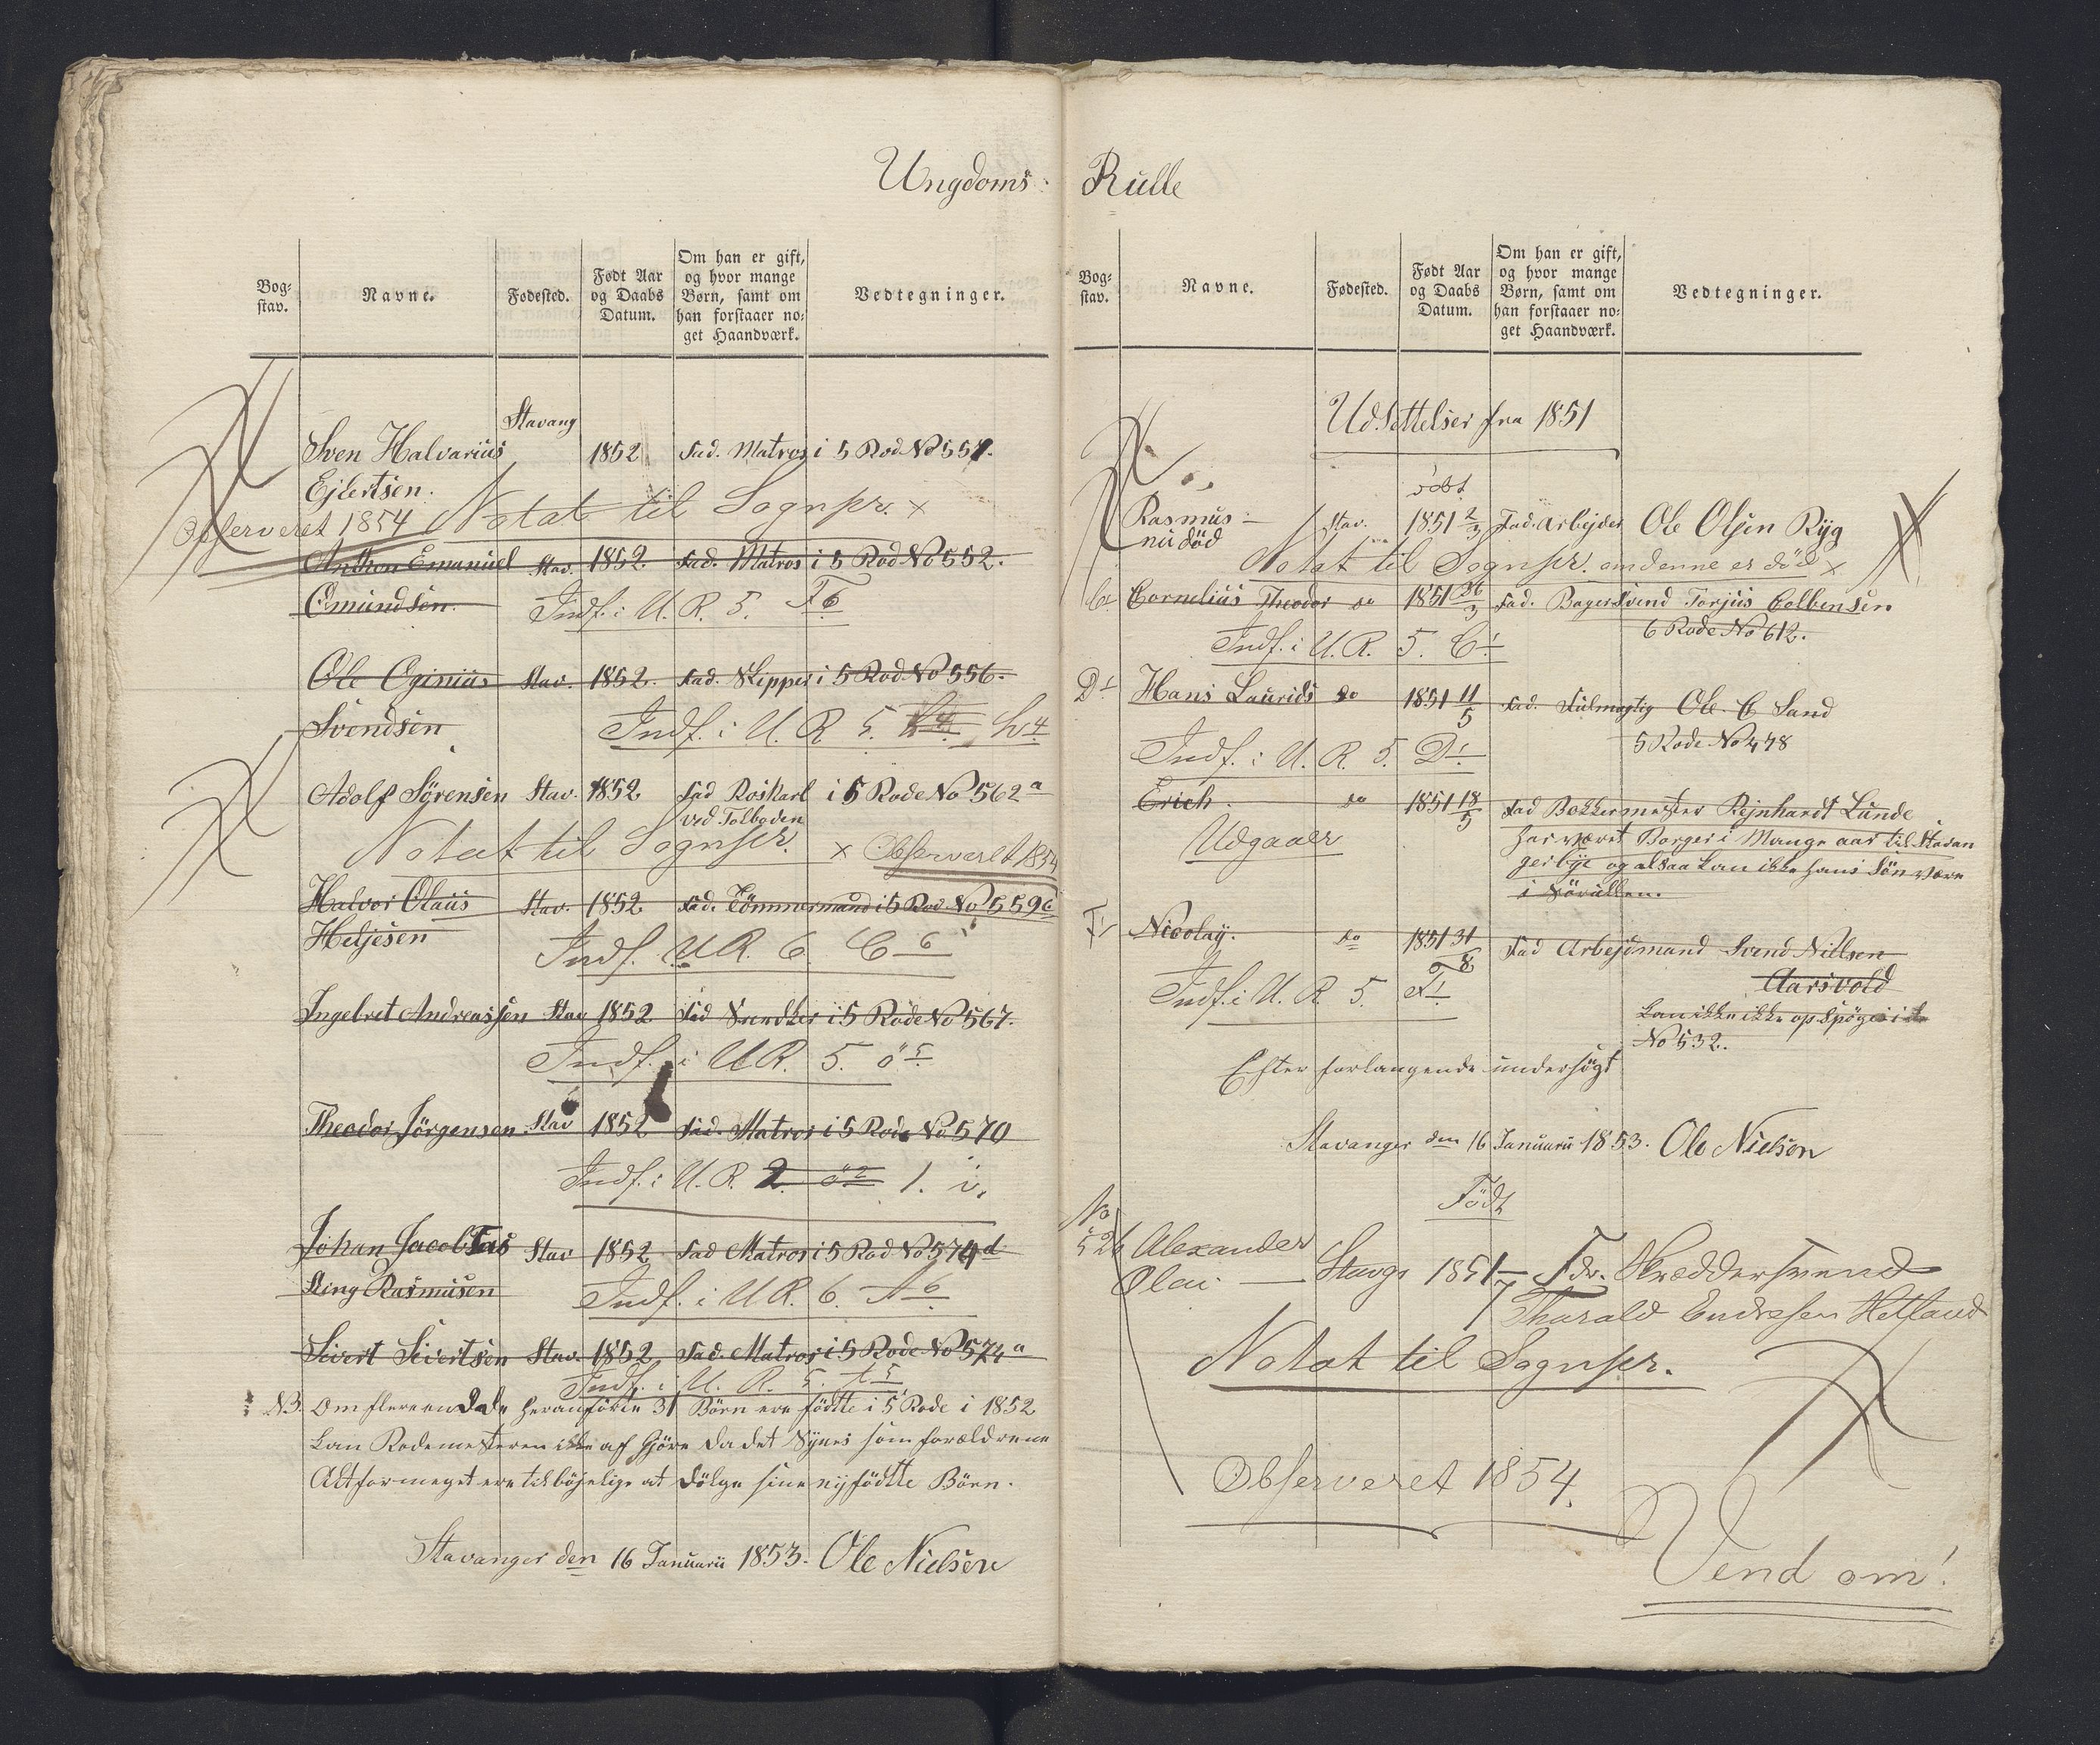 Ungdoms:
Bog-
stav.
Navne.
Fødested.
Født Aar
og Daabs
Datum.
Om han er gift,
og hvor mange
Børn, samt om
han forstaaer no-
get Haandværk.
Vedtegninger.
Stavang
Sven Halvarius 1852 Fad. Matros i 5 Rod. No 557.
Ejlertsen.
Observeret 1854 Notat til Sognpr. x
Anthon Emanuel Stav. 1852. Fad. Matros i 5 Rod No 552.
Omundsen. Indf. i U. R. 5. F6
Ole Oginius Stav. 1852. Fad. Skipper i 5 Rod. No 556.
Svendsen Indf. i U. R 5.
Adolf Sørensen Stav. 1852 Fad Roskarl i 5 Rode No 562 a
ved Tolboden
Notat til Sognpr. x Observeret 1854
Halvor Olaus Stav. 1852 Fad. Tömmermand i 5 Rod No 559
Heljesen Indf. U.R. 6 C 6
Ingebret Andreassen Stav 1852 Fad i 5 Rode No 567.
Indf. i U.R. 5. ö 5
Theodor Jörgensen Stav 1852 Fad. Matros i 5 Rode No 570
Indf. i U. R. 2 ö2 1. i.
Johan Jacob Tas Stav 1852 Fad Matros i 5 Rod No 574 d
King Rasmusen Indf. i U.R. 6. A 6
Sivert Sivertsen Stav. 1852 Fad. Matros i 5 Rode No 574 a
Indf. i U. R. 5.
NB. Om flere end de heranförte 31 Börn ere födtte i 5 Rode i 1852
kan Rodemesteren ikke afgjöre da det synes som forældrene
Altformeget ere tilböjelige at dölge sine nyfödtte Börn.
Stavanger den 16 Januarii 1853. Ole Nielsen
Rulle
Bog-
stav.
Navne.
Fødested.
Født Aar
og Daabs
Datum.
Om han er gift,
og hvor mange
Børn, samt om
han forstaaer no-
get Haandværk.
Vedtegninger.
Udsettelser fra 1851
födt
Rasmus Stav. 1851 2/3 Fad. Arbejder Ole Olsen Ryg
nu död
Notat til Sognpr. om denne er död x
Cornelius Theodor do 1851 26/3 Fad. Bagersvend Torjus Colbensen
6 Rode No 612.
Indf. i U. R. 5. C 1
D 1 Hans Laurids do 1851 11/5 Fad. Fulmagtig Ole C Sand
5 Rode No 478
Indf. i U. R. 5. D 1
Erich. do 1851 18/5 Fad Bokkermester Rejnhardt Lunde
Udgaaer har været Borger i Mange aar til Stavan
ger bye og alsaa kan ikke hans sön være
i Sörullen.
Nicolay. do 1851 31/8 Fad Arbejdmand Svend Nillsen
Aarsvold
Indf. i U. R. 5. F 1
kan ikke ikke opspöges i
No 532.
Efter forlangende undersögt
Stavanger den 16 Januarii 1853. Ole Nielsen
Födt
No
526 Alexander
Olai Stavgr 1851 /7 Fdr. Skræddersvend
Tharald Endresen Hetland
Notat til Sognpr.
Observeret 1854.
Vend om!